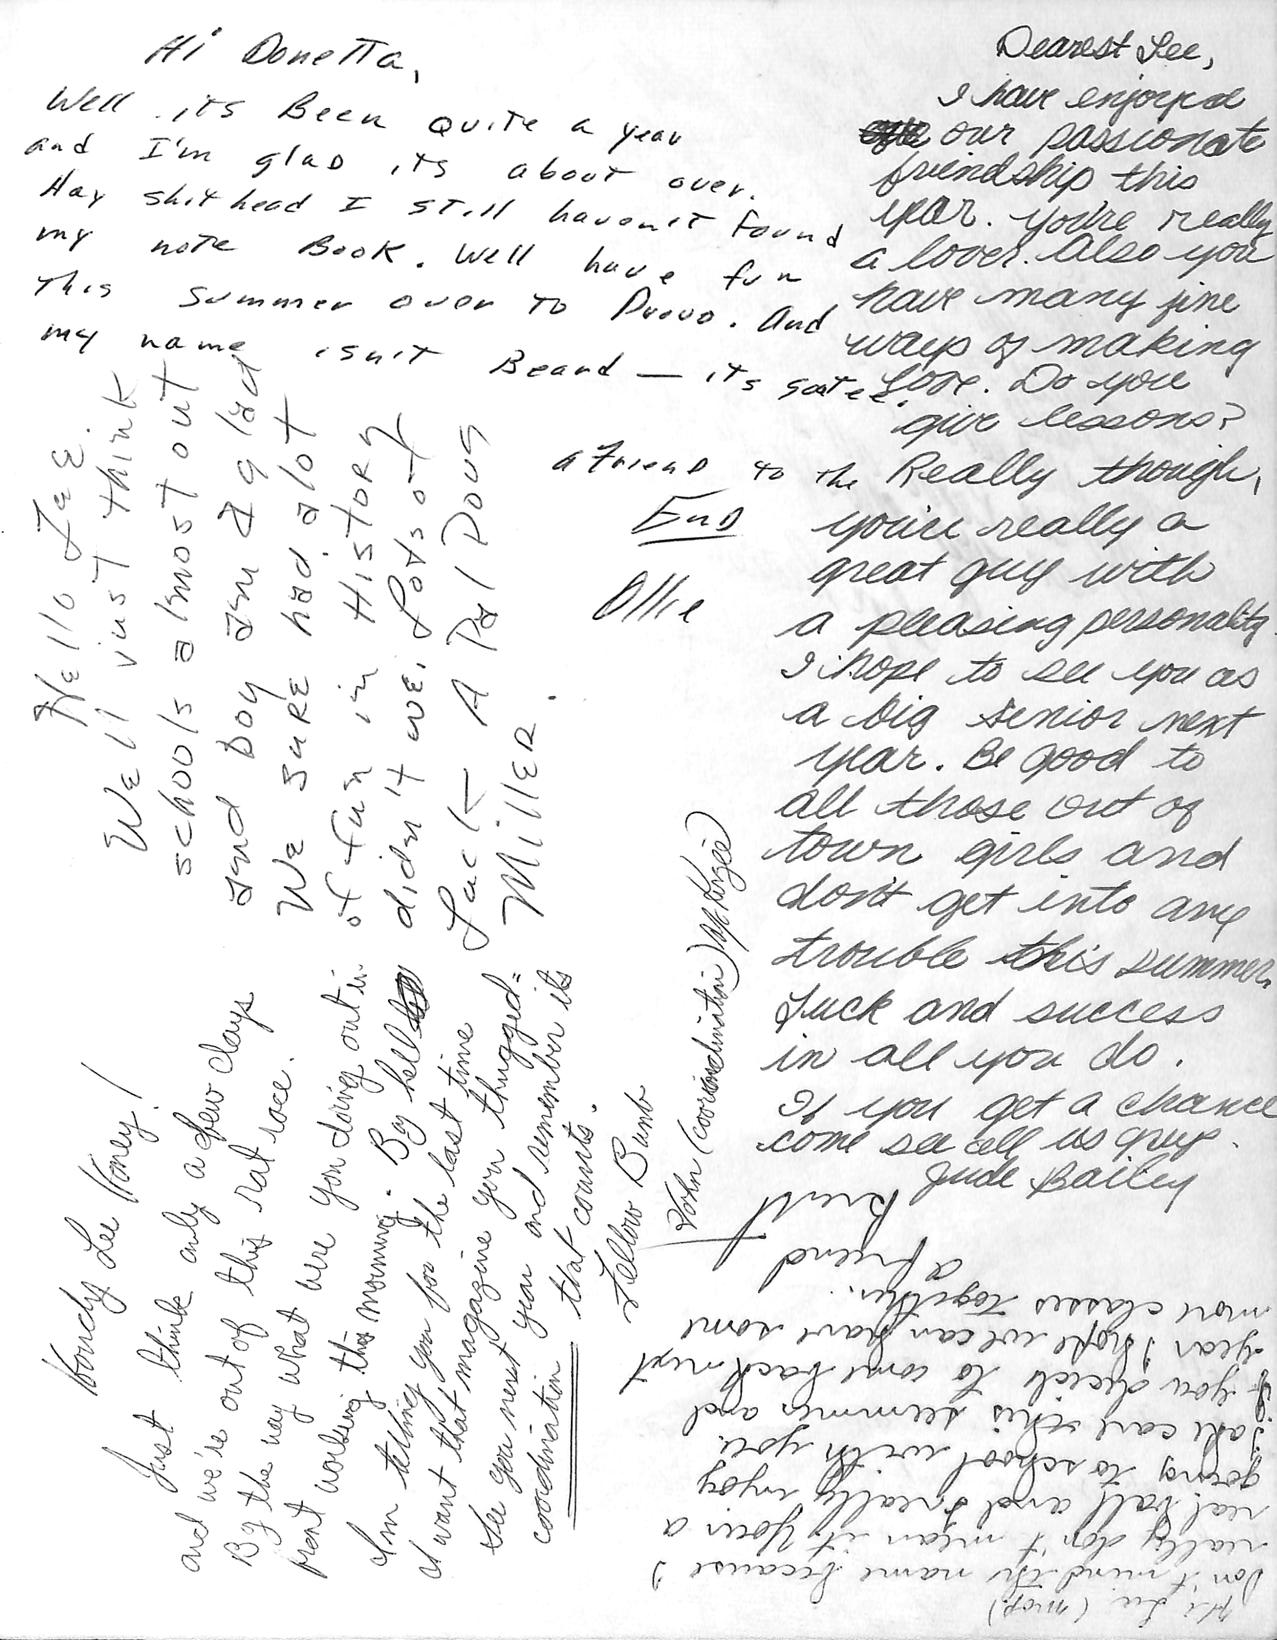 Hi Donetta,
Well its Been quite a year
and I'm glad its about over.
Hay shit head I still haven't found
my note Book. Well have fun
this summer over to Provo. And
my name isn't Beard — its goatee.
a friend to the
End
Ollie
Dearest Lee,
I have enjoyed
our passionate
friendship this
year. you're really
a lover. Also you
have many fine
ways of making
love. Do you
give lessons?
Really though,
you're really a
great guy with
a pleasing personality.
I hope to see you as
a big senior next
year. Be good to
all those out of
town girls and
don't get into any
trouble this summer.
Luck and success
in all you do.
If you get a chance
come see all us guys.
Jude Bailey
Hello Lee.
Well just think
schools almost out
and boy am I glad
We sure had alot
of fun in History
didn't we. Lots of
Luck – A Pal Doug
Miller.
Lee Honey!
Just think only a few days
and we're out of this rat race.
By the way what were you doing out in
front working this morning. By hell
I'm telling you for the last time
I want that magazine you thugged=
See you next year and remember its
coordination that counts.
Fellow Bumb
John (coordination) McKenzie
Hi Lee (mop)
Don't mind the name because I
really don't mean it. Your a
real ball and I really enjoy
going to school with you.
Take care this summer and
if you decide to come back next
year I hope we can have some
more classes together.
a friend
Kent